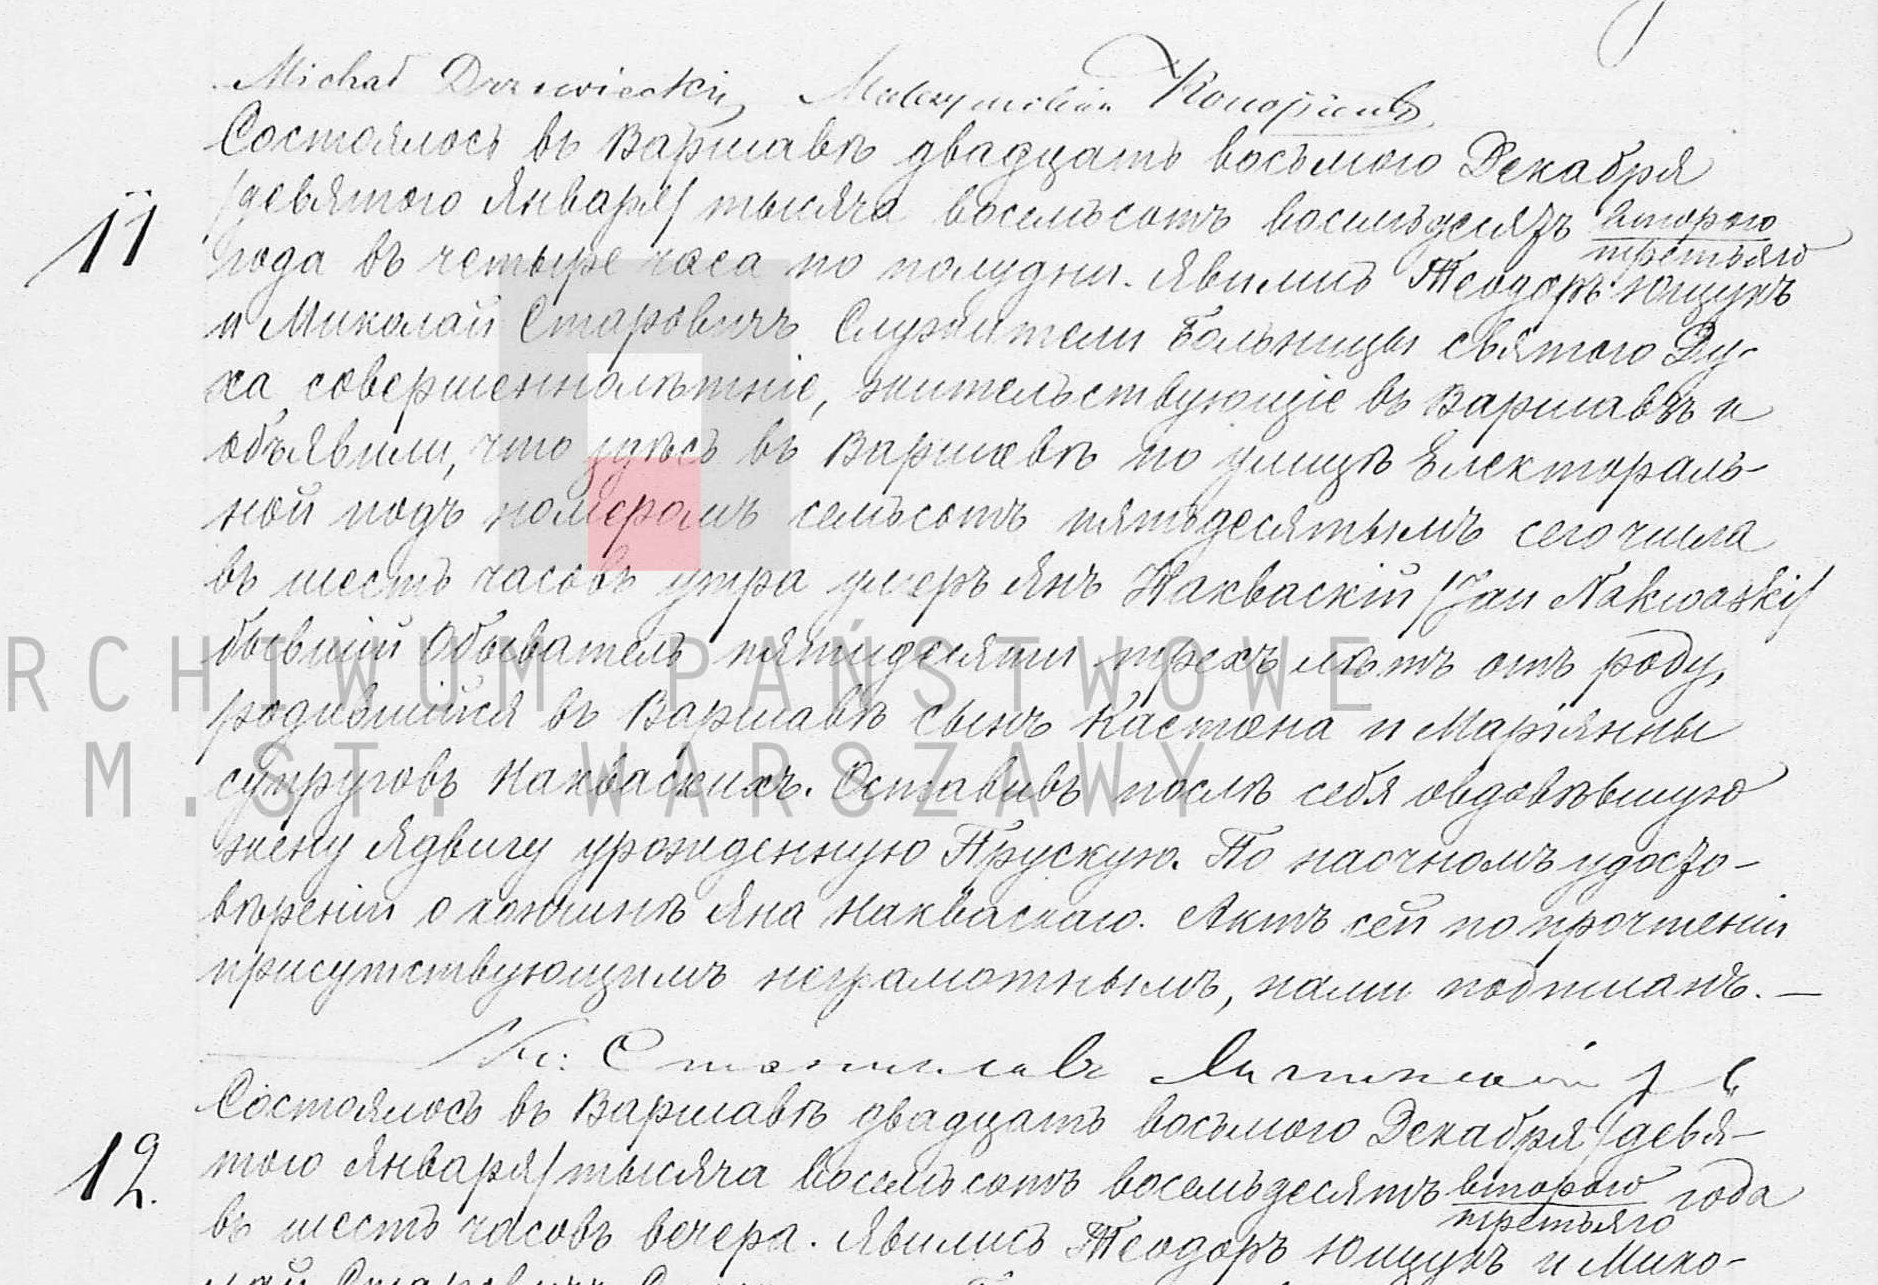 Michał Drzewiecki,
Состоялось въ Варшавѣ двадцать восьмого Декабря
11 /девятого Января/ тысяча восемьсотъ восемьдесятъ второго
третьяго
года въ четыре часа по полудни. Явились Теодоръ Ющукъ
и Миколай Старовичъ служители Больницы святого Ду-
ха, совершеннолѣтніе, жительствующіе въ Варшавѣ и
объявили, что здѣсь въ Варшавѣ по улицѣ Електораль-
ной подъ номеромъ семьсотъ пятьдесятымъ сего числа
въ шесть часовъ утра умеръ Янъ Накваскій /Jan Nakwaski/
бывшій Обыватель пятидесяти трехъ лѣтъ отъ роду,
ARCHIWUM PAŃSTWOWE
родившійся въ Варшавѣ сынъ Каетана и Маріянны
M.ST. WARSZAWY
супруговъ Накваскихъ. Оставивъ послѣ себя овдовѣвшую
жену Ядвигу урожденную Прускую. По наочномъ удосто-
вѣреніи о кончинѣ Яна Накваскаго. Актъ сей по прочтеніи
присутствующимъ неграмотнымъ, нами подписанъ. —
Кс: Станиславъ
Состоялось въ Варшавѣ двадцать восьмого Декабря /девя-
12. того Января/ тысяча восемьсотъ восемьдесятъ второго года
третьяго
въ шесть часовъ вечера. Явились Теодоръ Ющукъ и Мико-
лай Старовичъ